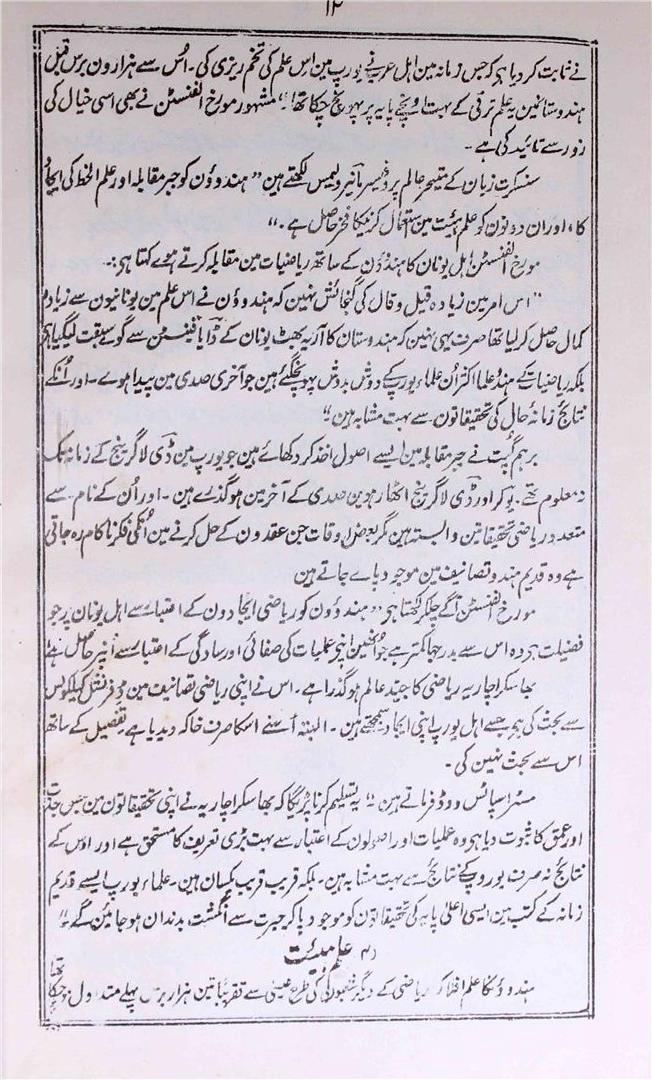 ۱۲
نے ثابت کر دیا ہے کہ جس زمانہ مین اہل عرب نے یورپ مین اس علم کی تخم ریزی کی۔ اُس سے ہزارون برس قبل
ہندوستانمین یہ علم ترقی کے بہت اونچے پایہ پر پہونچ چکا تھا۔" مشہور مورخ الفنسٹن نے بھی اسی خیال کی
زور سے تائید کی ہے۔
سنسکرت زبان کے متبحر عالم پروفیسر مانیر ولیمس لکھتے ہین "ہندوؤن کو جبر مقابلہ اور علم الخط کی ایجاد
کا، اور ان دونون کو علم ہئیت مین استعمال کرنیکا فخر حاصل ہے۔"
مورخ الفنسٹن اہل یونان کا ہندؤن کے ساتھ ریاضیات مین مقابلہ کرتے ہوے کہتا ہی:۔
"اس امر مین زیادہ قیل و قال کی گنجائش نہین کہ ہندوؤن نے اس علم مین یونانیون سے زیادہ
کمال حاصل کر لیا تھا صرف یہی نہین کہ ہندوستان کا آریہ بھٹ یونان کے ڈایافینٹس سے گوے سبقت لیگیا ہے
بلکہ ریاضیات کے ہندو علما اکثر اُن علماء یورپ کے دوش بدوش پہونچگئے ہین جو آخری صدی مین پیدا ہوے۔ اور اُنکے
نتائج زمانہ حال کی تحقیقاتون سے بہت مشابہ ہین۔"
برہم گپت نے جبر مقابلہ مین ایسے اصول اخذ کر دکھائے ہین جو یورپ مین ڈی لاگرینج کے زمانہ تک
نہ معلوم تھے۔ یولر اور ڈی لاگرینج اٹھارہوین صدی کے آخر مین ہو گذرے ہین۔ اور اُن کے نام سے
متعدد ریاضی تحقیقاتین وابستہ ہین مگر بعض اوقات جن عقدون کے حل کرنے مین اُنکی فکر ناکام رہ جاتی
ہے وہ قدیم ہندو تصانیف مین موجود پاے جاتے ہین
مورخ الفنسٹن آگے چلکر لکھتا ہی "ہندوؤن کو ریاضی ایجادون کے اعتبار سے اہل یونان پر جو
فضیلت ہی وہ اس سے بدرجہا کمتر ہے جو اُنہین اپنی عملیات کی صفائی اور سادگی کے اعتبار سے اُنپر حاصل ہے"
بھاسکر اچاریہ ریاضی کا جید عالم ہو گذرا ہے۔ اس نے اپنی ریاضی تصانیف مین ڈفرنشل کیلکولس
سے بحث کی ہے جسے اہل یورپ اپنی ایجاد سمجھتے ہین۔ البتہ اُسنے اسکا صرف خاکہ دیدیا ہے تفصیل کے ساتھ
اس سے بحث نہین کی۔
مسٹر اسپاٹس ووڈ فرماتے ہین۔ "یہ تسلیم کرنا پڑیگا کہ بھاسکر اچاریہ نے اپنی تحقیقاتون مین جس جدت
اور عمق کا ثبوت دیا ہی وہ عملیات اور اصولون کے اعتبار سے بہت بڑی تعریف کا مستحق ہے اور اوس کے
نتائج نہ صرف یوروپ کے نتائج سے بہت مشابہ ہین۔ بلکہ قریب قریب یکسان ہین۔ علماء یورپ ایسے قدیم
زمانہ کے کتب مین ایسی اعلیٰ پایہ کی تحقیقاتون کو موجود پا کر حیرت سے انگشت بدندان ہو جائین گے۔"
علم ہیئت
ہندوؤنکا علم افلاک ریاضی کے دیگر شعبون کی طرح عیسیٰ سے تقریباً تین ہزار برس پہلے متداول ہو چکا تھا